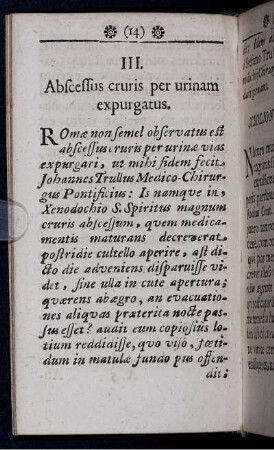 (14)
III.
Abſceſſus cruris per urinam
expurgatus.
ROmæ non ſemel obſervatus eſt
abſceſſus cruris per urinæ vias
expurgari, ut mihi fidem fecit
Johannes Trullus Medico-Chirur-
gus Pontificius: Is namque in
Xenodochio S. Spiritus magnum
cruris abſceſſum, quem medica-
mentis maturans decreverat
poſtridie cultello aperire, aſt di-
cto die adveniens diſparuiſſe vi-
det, ſine ulla in cute apertura;
quærens ab ægro, an evacuatio-
nes aliquas præterita nocte paſ-
ſus eſſet? audit eum copioſius lo-
tium reddidiſſe, quo viſo, fœti-
dum in matulæ fundo pus offen-
dit;